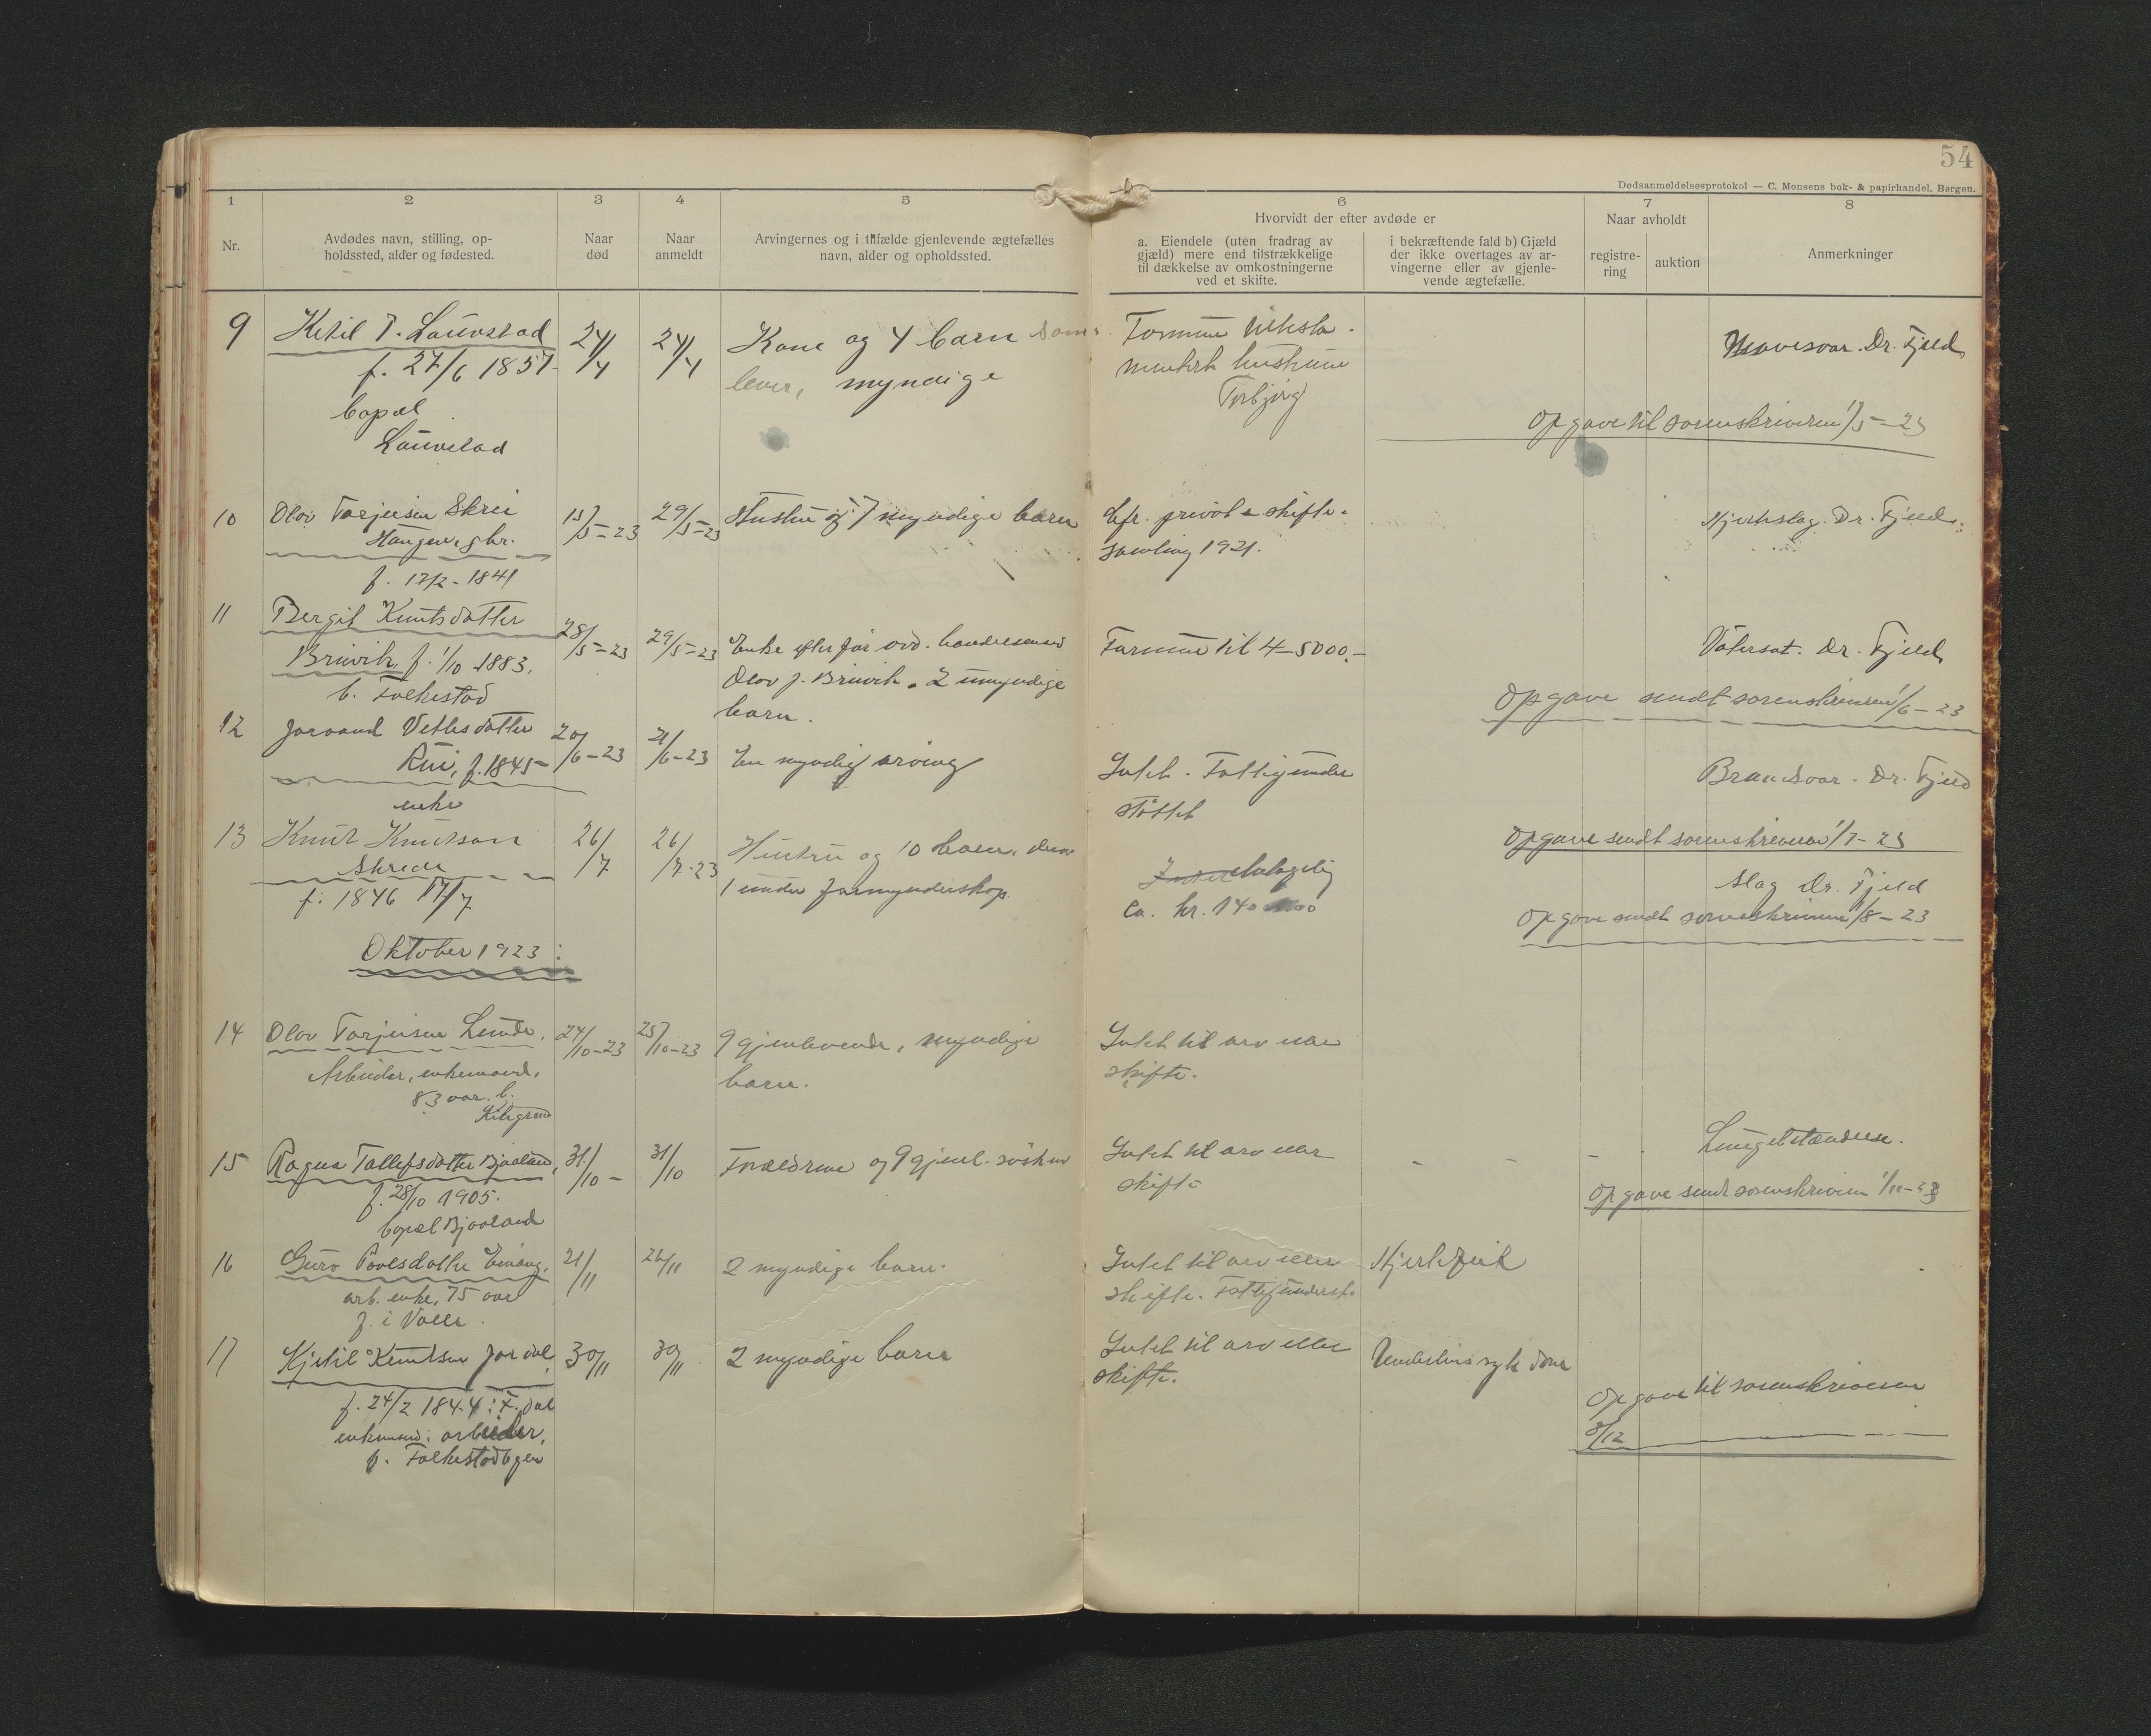 54
Dødsanmeldelsesprotokol — C. Monsens bok- & papirhandel, Bergen.
1
2
3
4
5
6
7
8
Nr.
Avdødes navn, stilling, op-
holdssted, alder og fødested.
Naar
død
Naar
anmeldt
Arvingernes og i tilfælde gjenlevende ægtefælles
navn, alder og opholdssted.
Hvorvidt der efter avdøde er
a. Eiendele (uten fradrag av
gjæld) mere end tilstrækkelige
til dækkelse av omkostningerne
ved et skifte.
i bekræftende fald b) Gjæld
der ikke overtages av ar-
vingerne eller av gjenle-
vende ægtefælle.
Naar avholdt
registre-
ring
auktion
Anmerkninger
9
Ketil T. Lauvstad
f. 27/6 1857
bopæl
Lauvstad
24/4
24/4
Kone og 4 barn som
lever, myndige
Formue
Torbjørg
Dr. Fjeld
Opgave til sorenskriveren 1/5-23
10
Olov Torjusen Skrei
Haugen, gbr.
f. 17/2-1841
15/5-23
29/5-23
Hustru og 7 myndige barn
Cfr. privat skifte-
samling 1921.
Hjerteslag. Dr. Fjeld
11
Bergit Knutsdatter
Bruvik, f. 1/10 1883,
b. Folkestad
28/5-23
29/5-23
Enke efter før avd. handelsmand
Olov J. Bruvik. 2 umyndige
barn.
Formue til 4-5000.-
Vatersot. Dr. Fjeld
Opgave sendt sorenskriveren 1/6-23
12
Joraand Vetlesdatter
Rui, f. 1845-
enke
20/6-23
21/6-23
En myndig arving
Intet. Fattigunder
støttet
Dr. Fjeld
Opgave sendt sorenskriveren 1/7-23
13
Knut Knutson
Skrede
f. 1846 17/7
26/7
26/7-23
Hustru og 10 barn, derav
1 under formynderskap.
ca. kr.
Slag Dr. Fjeld
Opgave sendt sorenskriveren 1/8-23
Oktober 1923:
14
Olov Torjusen Lunde,
Arbeider, enkemand,
83 aar. b.
24/10-23
25/10-23
9 gjenlevende, myndige
barn.
Intet til arv eller
skifte.
15
Ragna Tallefsdatter Bjaaland,
f. 28/10 1905.
bopæl Bjaaland
31/10-
31/10
Forældrene og 9 gjenl. søsken
Intet til arv eller
skifte
- - -
Lungebetændelse.
Opgave sendt sorenskriveren 1/11-23
16
Guro Povesdatter Einang,
arb. enke, 75 aar
f. i Valle.
21/11
26/11
2 myndige barn.
Intet til arv eller
skifte. Fattigunderst.
Hjertefeil
17
Kjetil Knutsen Jordal,
f. 24/2 1844 i F. dal
enkemand, arbeider,
b. Folkestadbyen
30/11
30/11
2 myndige barn
Intet til arv eller
skifte.
Underlivssykdom
Opgave til sorenskriveren
3/12